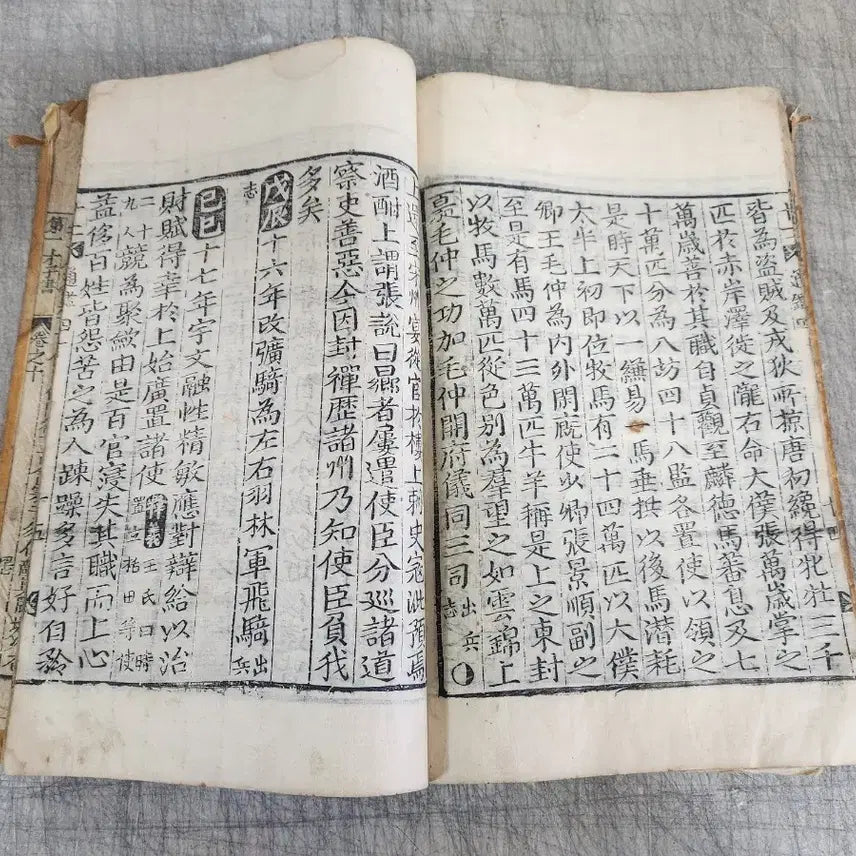 皆為盜賊及戎狄所掠唐初纔得牝牡三千
匹於赤岸澤徙之隴右命大僕張萬歲掌之
萬歲善於其職自貞觀至麟德馬蕃息及七
十萬匹分為八坊四十八監各置使以領之
是時天下以一縑易馬垂拱以後馬潛耗
太半上初即位牧馬有二十四萬匹以大僕
卿王毛仲為內外閑廐使少卿張景順副之
至是有馬四十三萬匹牛羊稱是上之東封
以牧馬數萬匹從色別為羣望之如雲錦上
嘉毛仲之功加毛仲開府儀同三司出兵志
上還至宋州宴從官於樓上刺史寇泚預焉
酒酣上謂張說曰曏者屢遣使臣分巡諸道
察吏善惡今因封禪歷諸州乃知使臣負我
多矣
戊辰十六年改彍騎為左右羽林軍飛騎出兵志
己巳十七年宇文融性精敏應對辯給以治
財賦得幸於上始廣置諸使釋義王氏曰時置租田等使
二十九人競為聚斂由是百官寖失其職而上心
益侈百姓皆怨苦之為人踈躁多言好自矜
卷之十